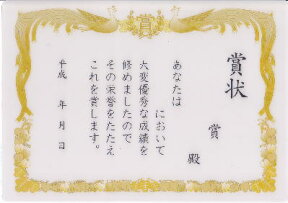 賞
賞状
賞
殿
あなたは
において
大変優秀な成績を
修めましたので
その栄誉をたたえ
これを賞します。
平成 年 月 日